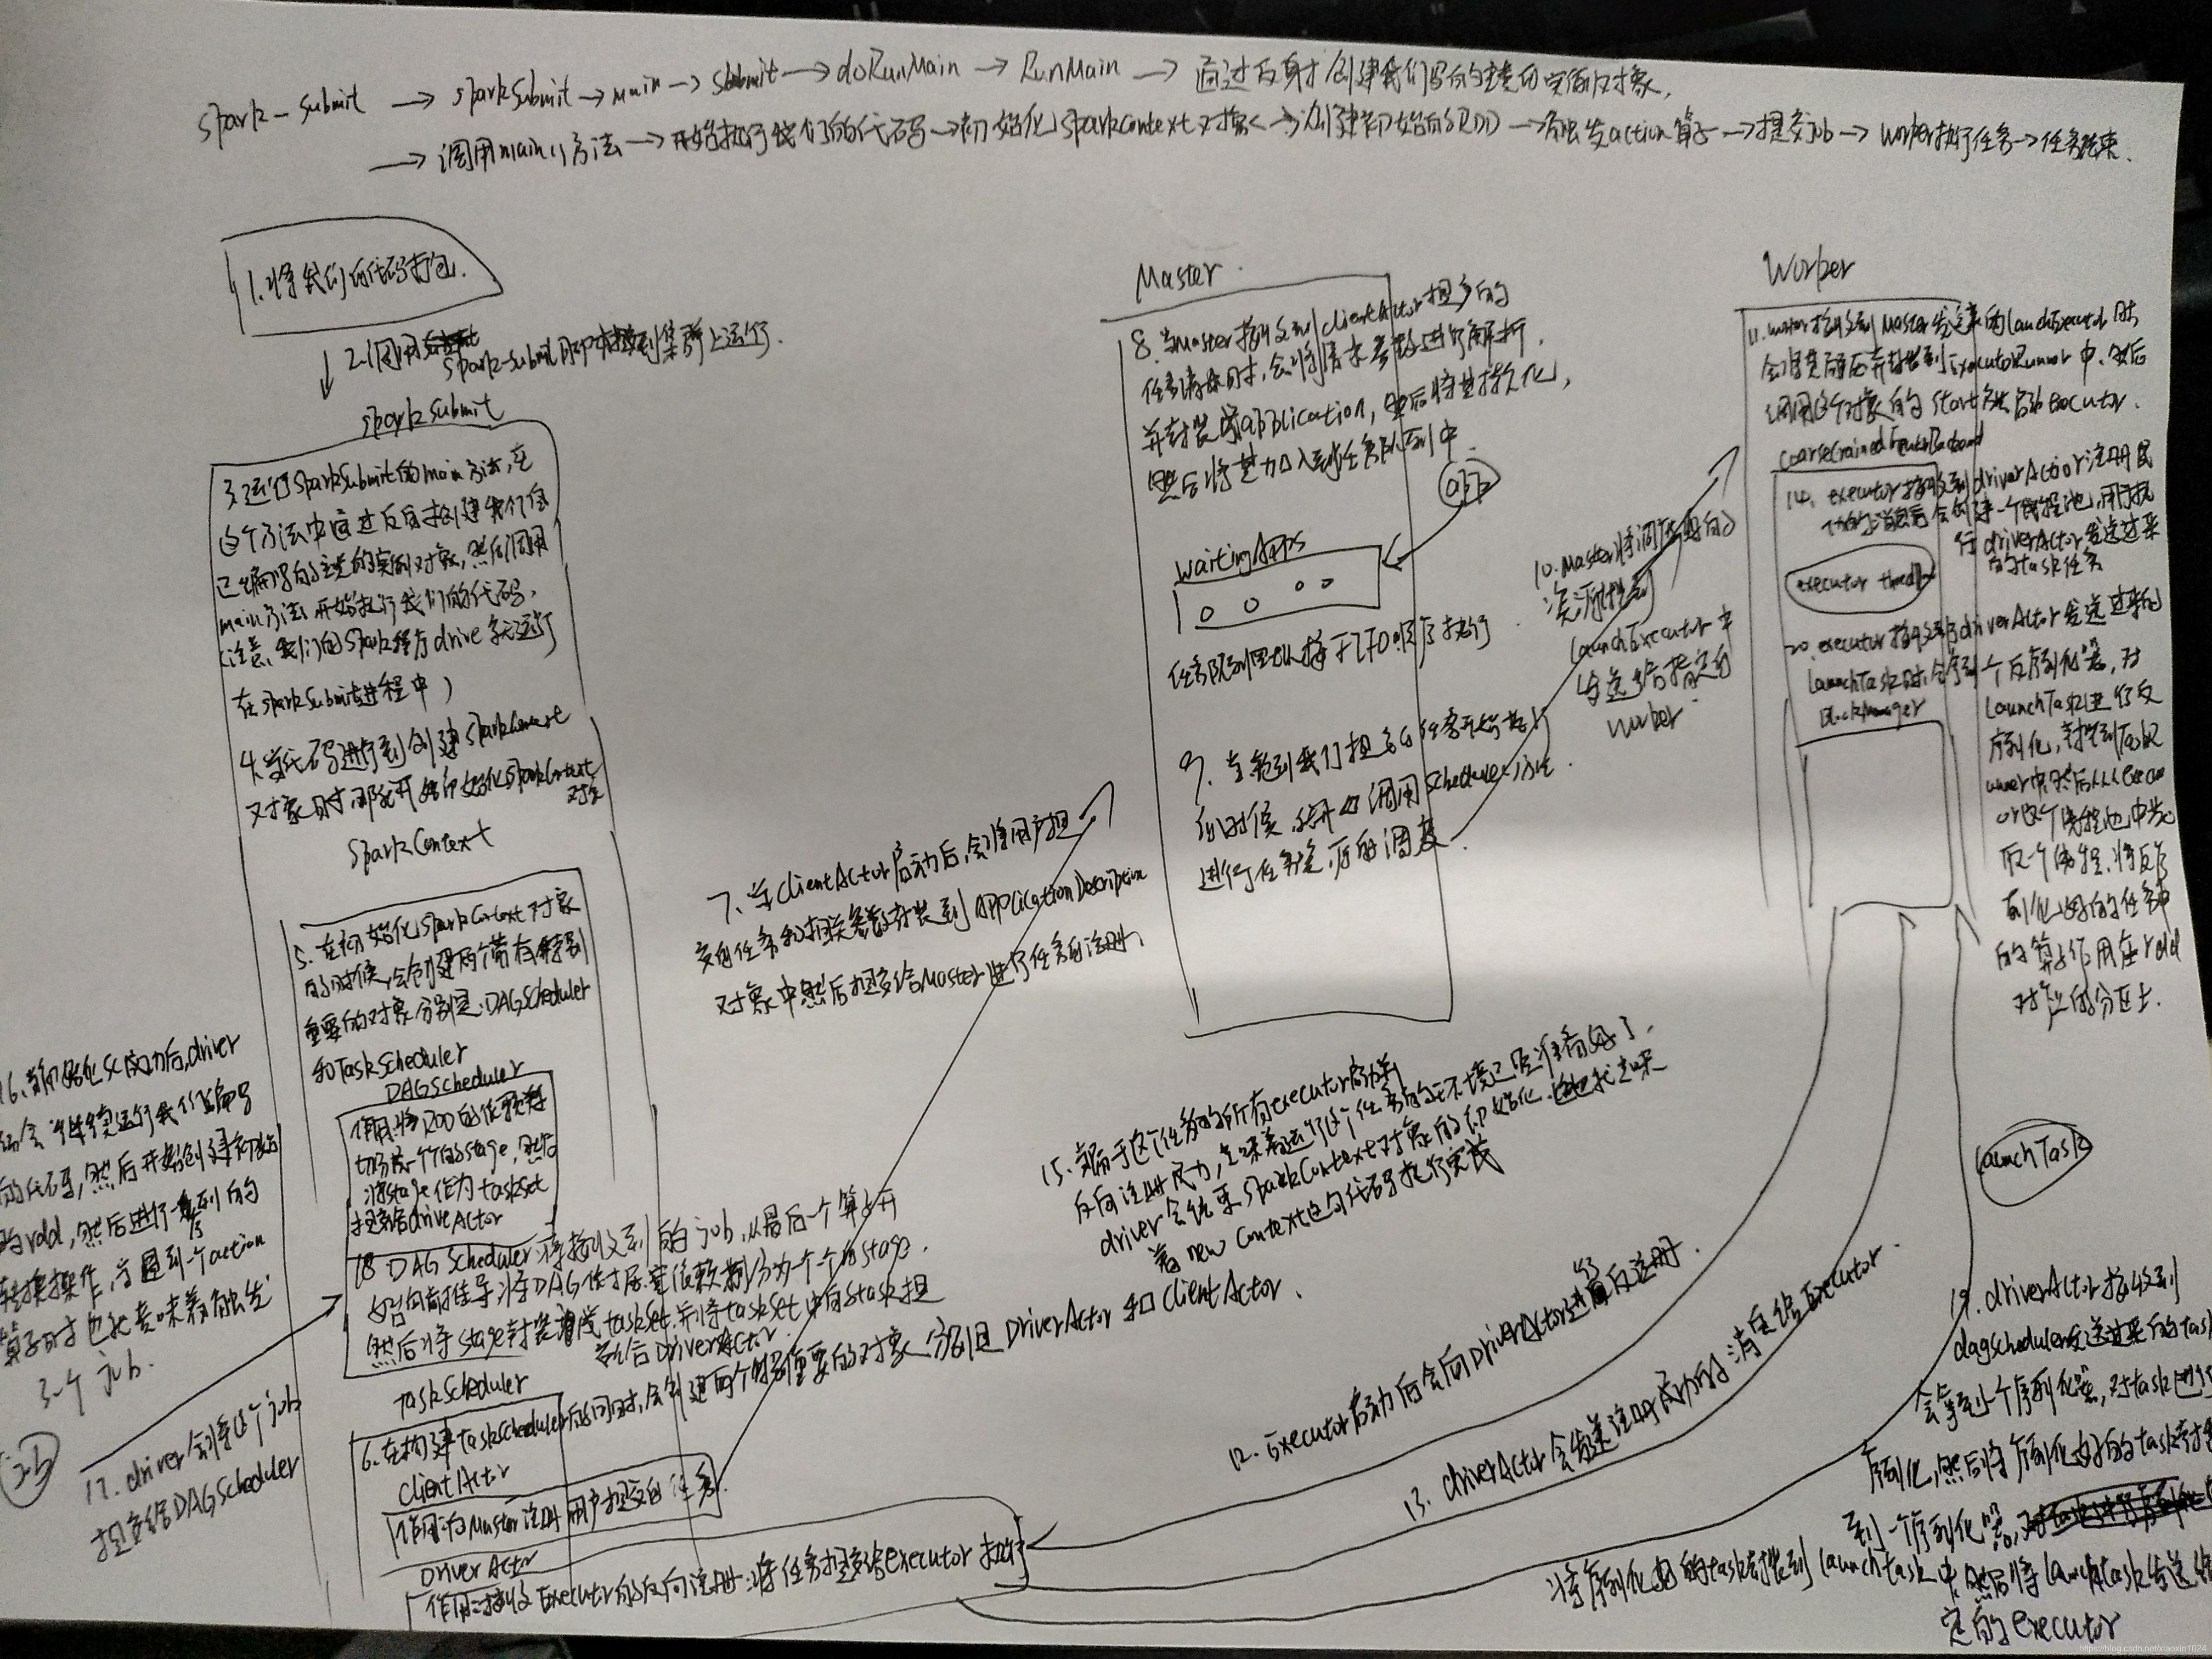 spark-submit → sparkSubmit → main → submit → doRunMain → RunMain → 通过反射创建我们写的主类的实例对象,
→ 调用main()方法 → 开始执行我们的代码 → 初始化SparkContext对象 → 创建初始的RDD → 触发action算子 → 提交job → worker执行任务 → 任务结束.
1.将我们的代码打包.
2.调用
spark-submit 到集群上运行.
sparkSubmit
3.运行SparkSubmit的main方法,在
这个方法中通过反射创建我们自
己编写的主类的实例对象,然后调用
main方法,开始执行我们的代码,
(注意,我们的spark程序drive 运行
在sparkSubmit进程中)
4.当代码进行到创建SparkContext
对象时,那就开始初始化SparkContext
对象
SparkContext
5.在初始化SparkContext对象
的时候,会创建两个带有特别
重要的对象分别是:DAGScheduler
和TaskScheduler
DAGScheduler
作用:将RDD的依赖
切成一个个的stage,然后
将stage作为taskset
提交给driveActor
18 DAGScheduler将接收到的job,从最后一个算子开
始向前推导,将DAG依 宽依赖划分为一个个的stage.
然后将stage封装 成taskSet,并将taskSet中的task提
交给DriverActor
TaskScheduler
6.在构建TaskScheduler的同时,会创建两个特别重要的对象,分别是DriverActor和ClientActor、
ClientActor
作用:向Master注册用户提交的任务.
DriverActor
作用:接收Executor的反向注册.将任务提交给executor执行
16.当初始化sc成功后,driver
会继续运行我们编写
的代码,然后开始创建初始
的rdd,然后进行一系列的
转换操作,当遇到一个action
算子时也就意味着触发
了一个job.
job
17.driver会将这个job
提交给DAGScheduler
7、当ClientActor启动后,会将用户提
交的任务和相关参数封装到ApplicationDescription
对象中然后提交给Master进行任务的注册、
Master
8.当Master接收到clientActor提交的
任务请求时,会将请求参数进行解析,
并封装成application,然后将其持久化,
然后将其加入到任务队列中.
app
waitingApps
任务队列默认 FIFO顺序执行
9.当轮到我们提交的任务开始执行
的时候,就开始调用schedule方法.
进行任务资源的调度.
10.Master将调度好的
资源封装到
launchExecutor中
发送给指定的
worker.
Worker
11.worker接收到Master发送来的launchExecutor时
会将其 封装到ExecutorRunner中,然后
调用这个对象的start 启动executor.
CoarseGrainedExecutorBackend
14、executor接收到driverActor注册成
功的消息后会创建一个线程池,用于执
行driverActor发送过来
的task任务
executor threads
20.executor接收到driverActor发送过来的
launchTask时,会 一个反序列化器,对
launchTask进行反
序列化,
BlockManager
然后从
这个线程池中
取一个线程,将反序
列化好的任务中
的算子作用在rdd
对应的分区上.
15.当属于这个任务的所有executor启动并
反向注册成功,意味着运行这个任务的环境已经准备好了.
driver会结束SparkContext对象的初始化,也就意味
着new Context这句代码执行完成
12.executor启动后会向DriverActor进行反注册.
13.driverActor会发送注册成功的消息给executor
launchTask
19.driverActor接收到
dagscheduler发送过来的task
会 一个序列化器,对task进行
序列化,然后将序列化好的task封装
到一个序列化器,
将序列化好的task封装到launchTask中,然后将launchTask发送给
定的executor
https://blog.csdn.net/xiaoxin1024